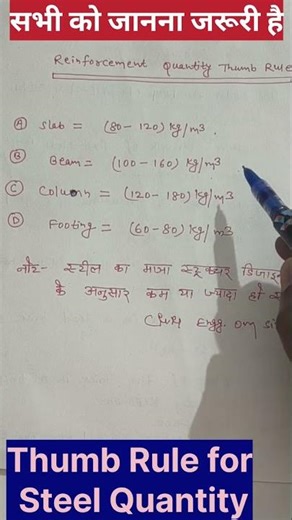 सभी को जानना जरूरी है
Reinforcement Quantity Thumb Rule
Ⓐ Slab = (80 – 120) kg/m3.
Ⓑ Beam = (100 – 160) kg/m3
Ⓒ Column = (120 – 180) kg/m3
Ⓓ Footing = (60 – 80) kg/m3
नोट:- स्टील का मात्रा स्ट्रक्चर डिजाइन
के अनुसार कम या ज्यादा हो
Civil Engg. om
Thumb Rule for
Steel Quantity